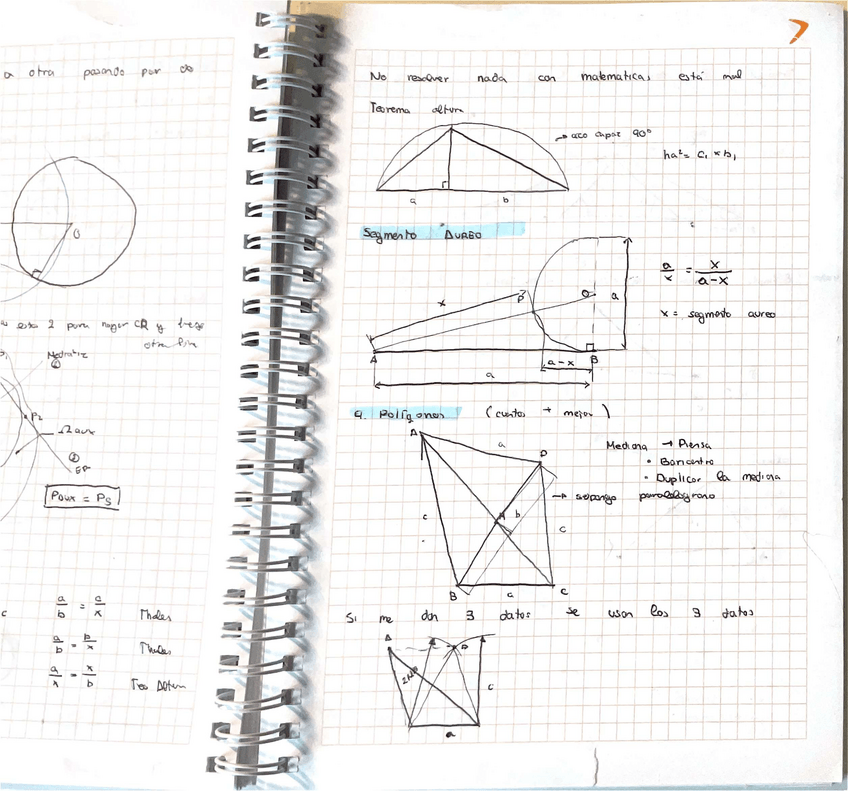 a otra pasando por
O
Mediatriz
①
P2
Ω aux
②
EP
Paux = PS
a/b = a/x Thales
a/b = b/x Thales
a/x = x/b Teo Altura
7
No resolver nada con matematicas, está mal
Teorema altura
→ arco capaz 90°
ha² = c₁ × b₁
a b
Segmento ÁUREO
a/x = x/(a-x)
x = segmento aureo
x P O a
A B
a-x
a
4. Polígonos (cuantos + mejor)
A a D
Mediana → Piensa
• Baricentro
• Duplicar la mediana
→ supongo paralelogramo
b
c c
B a C
Si me dan 3 datos se usan los 3 datos
A
c
a